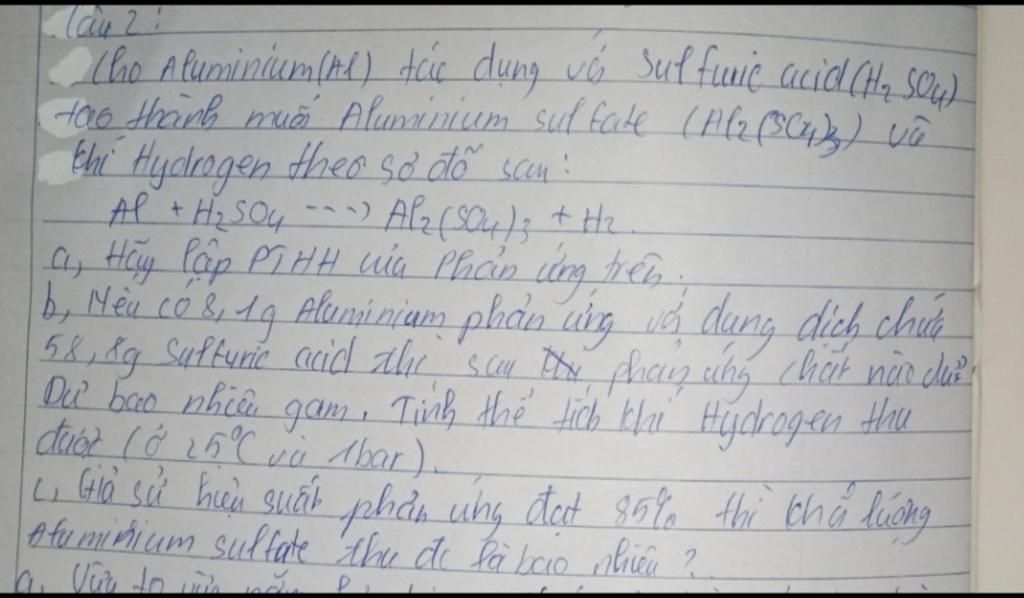 Câu 2:
Cho Aluminium(Al) tác dụng với Sulfuric acid(H₂SO₄)
tạo thành muối Aluminium sulfate (Al₂(SO₄)₃) và
khí Hydrogen theo sơ đồ sau:
Al + H₂SO₄ ---> Al₂(SO₄)₃ + H₂.
a, Hãy lập PTHH của phản ứng trên.
b, Nếu có 8,1g Aluminium phản ứng với dung dịch chứa
58,8g Sulfuric acid thì sau phản ứng chất nào dư?
Dư bao nhiêu gam. Tính thể tích khí Hydrogen thu
được (ở 25°C và 1bar).
c, Giả sử hiệu suất phản ứng đạt 85% thì khố lượng
Aluminium sulfate thu đc là bao nhiêu?